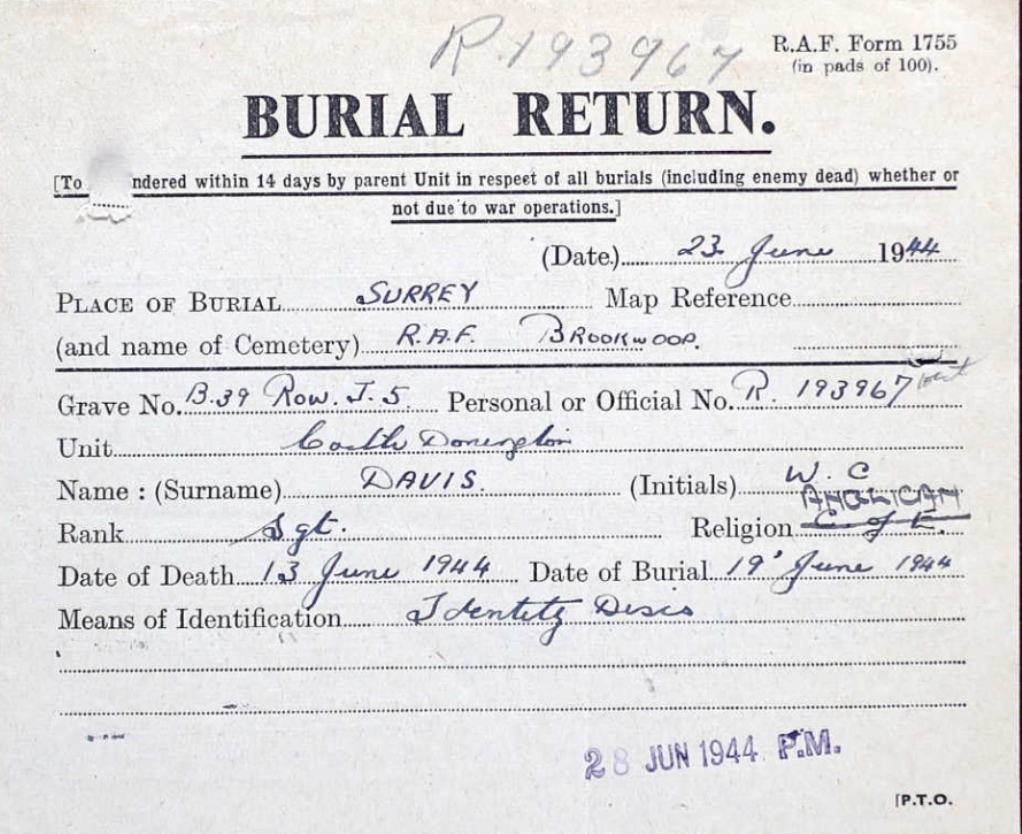 R.193967
R.A.F. Form 1755
(in pads of 100).
BURIAL RETURN.
[To ndered within 14 days by parent Unit in respect of all burials (including enemy dead) whether or
not due to war operations.]
(Date)..... 23 June 1944
PLACE OF BURIAL SURREY Map Reference
(and name of Cemetery) R.A.F. BROOKWOOD.
Grave No. B.39 Row. J.5. Personal or Official No. R. 193967
Unit Castle Donington
Name : (Surname) DAVIS. (Initials) W. C
ANGLICAN
Rank Sgt. Religion C of E.
Date of Death 13 June 1944 Date of Burial 19 June 1944
Means of Identification Identity Discs
28 JUN 1944 P.M.
[P.T.O.